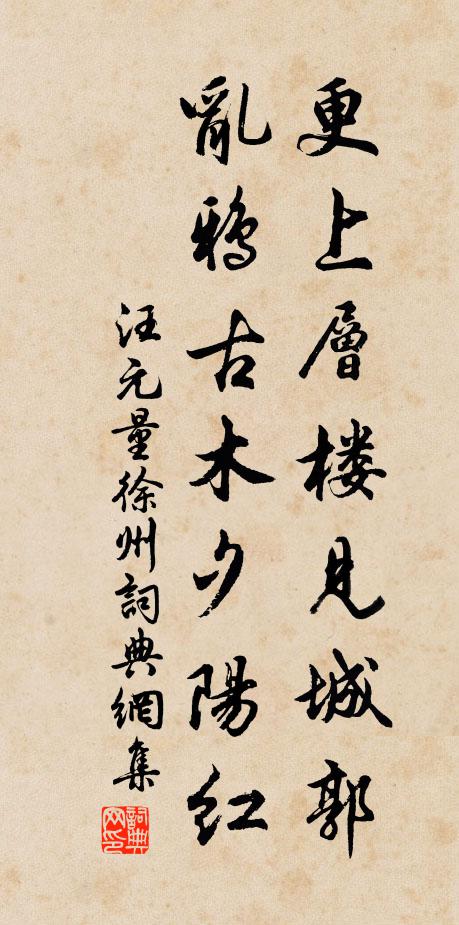 更上層楼見城郭
亂鴉古木夕陽紅
汪元量徐州詞典網集
詞典网印